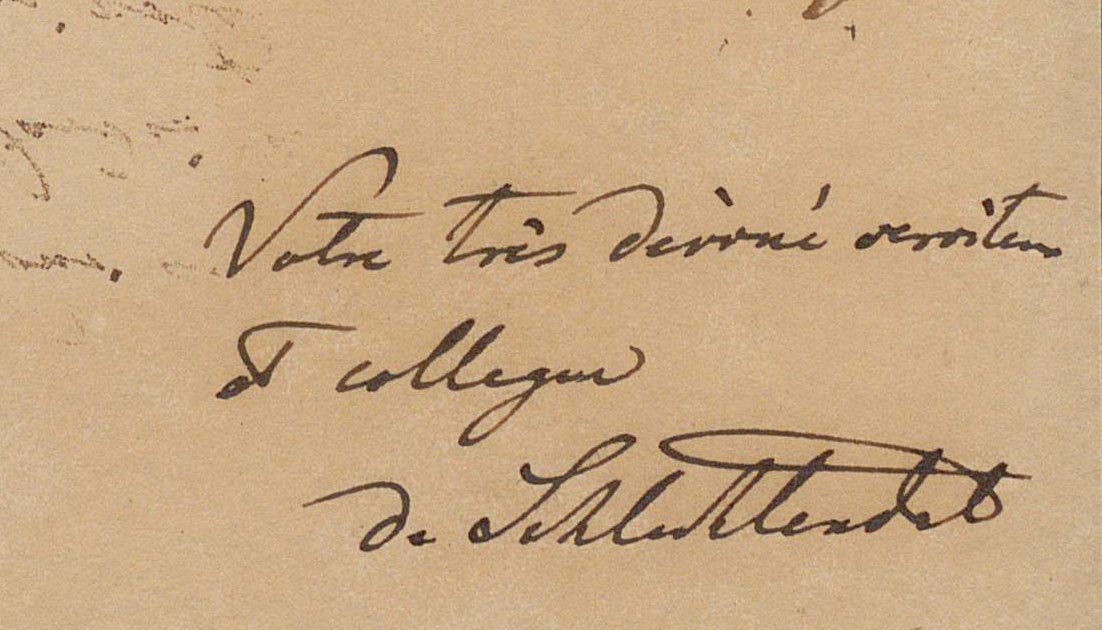 Votre très dévoué serviteur
et collegue
de Schlechtendal